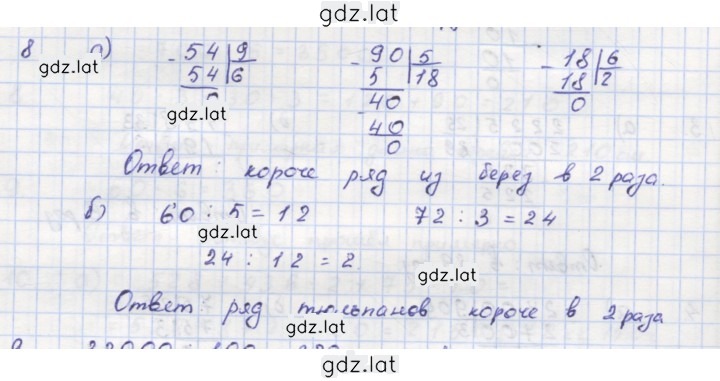 gdz.lat
8 а)
54 9 90 5 18 6
54 6 5 18 18 2
0 40 0
40
0
gdz.lat gdz.lat gdz.lat
gdz.lat
Ответ: короче ряд из берез в 2 раза.
б) 60 : 5 = 12 72 : 3 = 24
gdz.lat
24 : 12 = 2
gdz.lat
Ответ: ряд тюльпанов короче в 2 раза
gdz.lat
gdz.lat